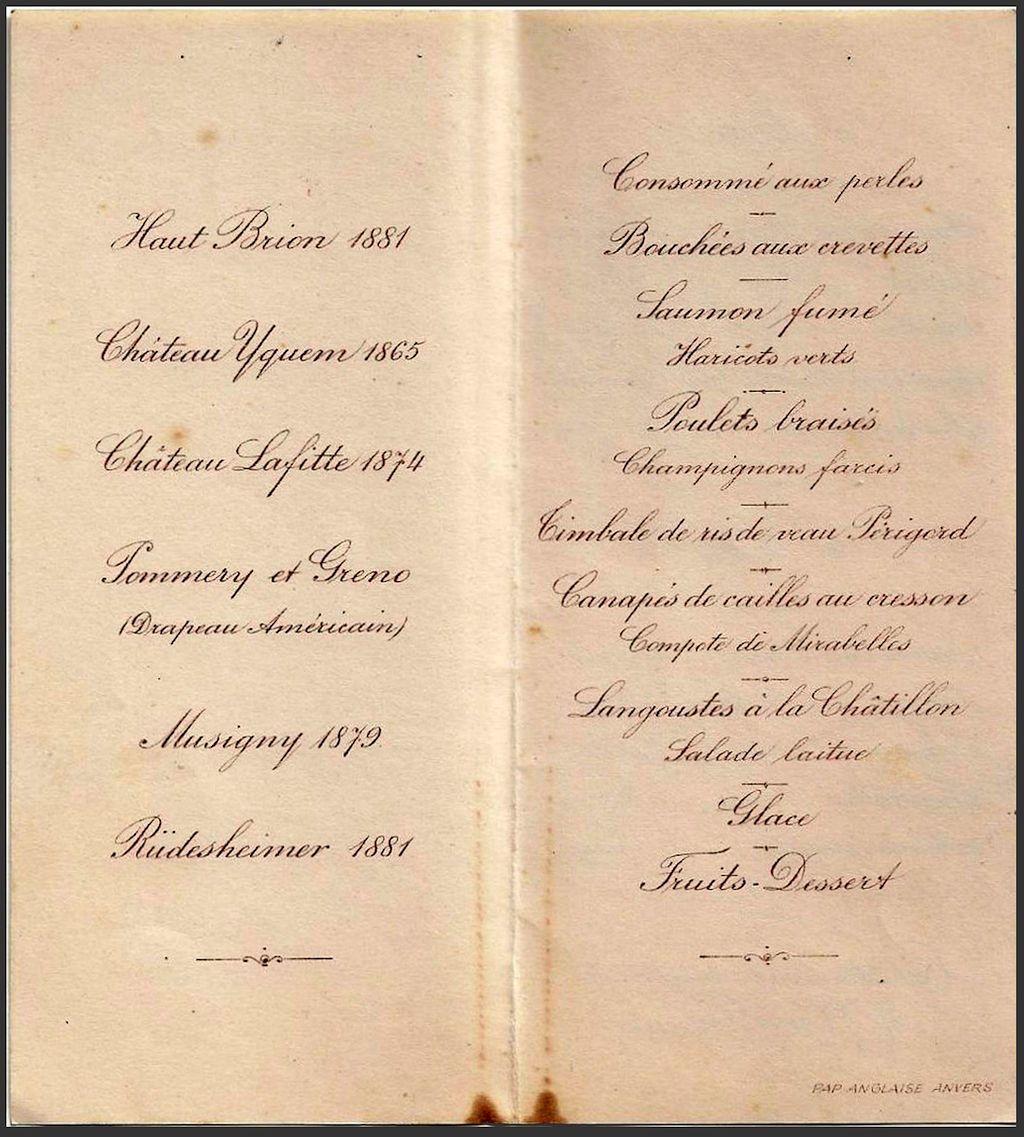 Haut Brion 1881
Château Yquem 1865
Château Lafitte 1874
Pommery et Greno
(Drapeau Américain)
Musigny 1879
Rüdesheimer 1881
Consommé aux perles
Bouchées aux crevettes
Saumon fumé
Haricots verts
Poulets braisés
Champignons farcis
Timbale de ris de veau Périgord
Canapés de cailles au cresson
Compote de Mirabelles
Langoustes à la Châtillon
Salade laitue
Glace
Fruits-Dessert
PAP. ANGLAISE ANVERS